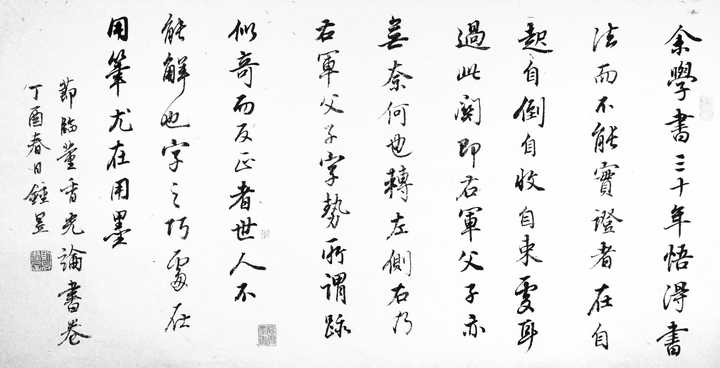 余學書三十年悟得書
法而不能實證者在自
起自倒自收自束處耳
過此關即右軍父子亦
無奈何也轉左側右乃
右軍父子字勢所謂跡
似奇而反正者世人不
能解也字之巧處在
用筆尤在用墨
節臨董香光論書卷
丁酉春日鍾